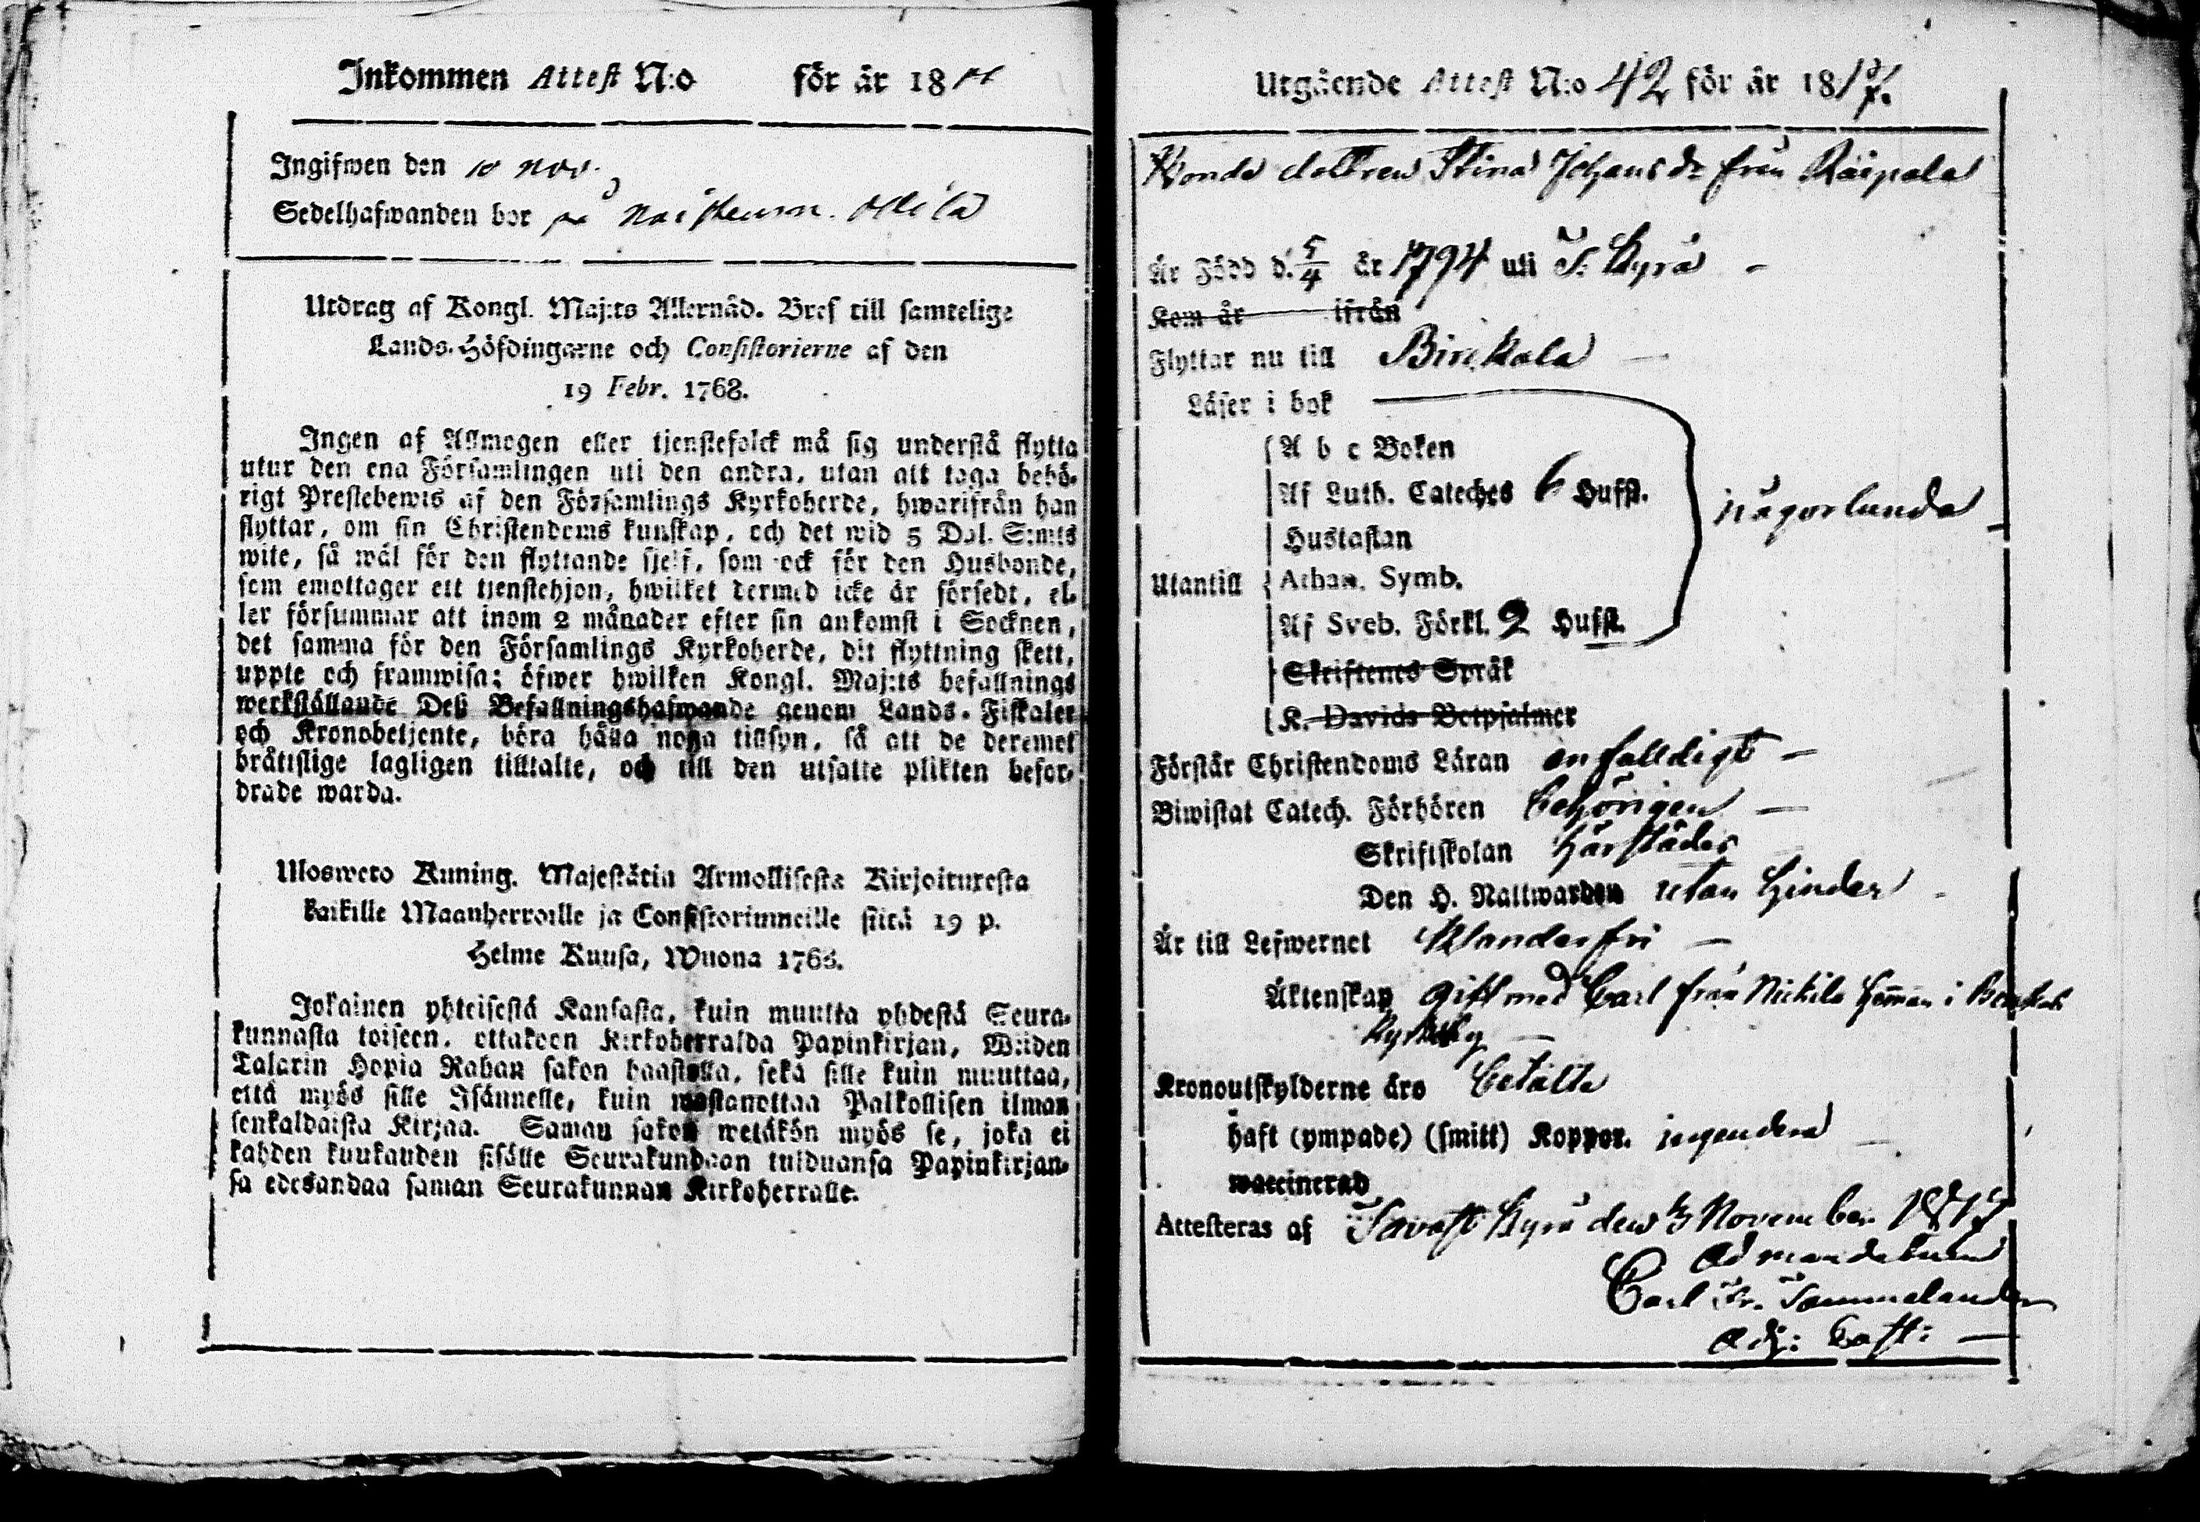 Inkommen Attest N:o för år 18
Ingifwen den 10 Nov.
Sedelhafwanden bor på
Utdrag af Kongl. Maj:ts Allernåd. Bref till samtelige
Lands-Höfdingarne och Consistorierne af den
19 Febr. 1768.
Ingen af Allmogen eller tjenstefolck må sig understå flytta
utur den ena Församlingen uti den andra, utan att taga behö-
rigt Prestebewis af den Församlings Kyrkoherde, hwarifrån han
flyttar, om sin Christendoms kunskap, och det wid 5 Dal. S:mts
wite, så wäl för den flyttande sjelf, som ock för den Husbonde,
som emottager ett tjenstehjon, hwilket dermed icke är försedt, el-
ler försummar att inom 2 månader efter sin ankomst i Socknen,
det samma för den Församlings Kyrkoherde, dit flyttning skett,
uppte och framwisa; öfwer hwilken Kongl. Maj:ts befallnings
werkställande Deß Befallningshafwande genom Lands-Fiskaler
och Kronobetjente, böra hålla noga tillsyn, så att de deremot
bråttslige lagligen tilltalte, och till den utsatte plikten befor-
drade warda.
Uloswero Kuning. Majestätin Armollisesta Kirjoituxesta
kaikille Maanherroille ja Consistoriumeille siitä 19 p.
Helme Kuusa, Wuona 1768.
Jokainen yhteisestä Kansasta, kuin muutta yhdestä Seura-
kunnasta toiseen, ottakoon Kirkoherralda Papinkirjan, Wiiden
Talarin Hopia Rahan sakon haastolla, sekä sille kuin muuttaa,
että myös sille Isännelle, kuin wastanottaa Palkollisen ilman
senkaldaista Kirjaa. Saman sakon wetäkön myös se, joka ei
kahden kuukauden sisälle Seurakundaan tulduansa Papinkirjan-
sa edesandaa saman Seurakunnan Kirkoherralle.
Utgående Attest N:o 42 för år 1817.
Bonde dottren Stina Johans dr från Räipälä
Är Född d. 5/4 år 1794 uti T. Kyrö
Kom år ifrån
Flyttar nu till Birckala
Läser i bok
A b c Boken
Af Luth. Cateches 6 Hufst.
någorlunda
Hustaflan
Utantill Athan. Symb.
Af Sveb. Förkl. 2 Hufst.
Skriftenes Språk
K. Davids Botpsalmer
Förstår Christendoms Läran enfalldigt
Biwistat Catech. Förhören behörigen
Skriftskolan härstädes
Den H. Nattwarden utan hinder
Är till Lefwernet klanderfri
Äktenskap gift med Carl från Nickila heman i
Kyrkby
Kronoutskylderne äro betalte
haft (ympade) (smitt) Koppor. ingendera
waccinerad
Attesteras af Tavast Kyrö den November 1817
Ad mandatum
Carl Fr. Sammelander
Adj: Past: